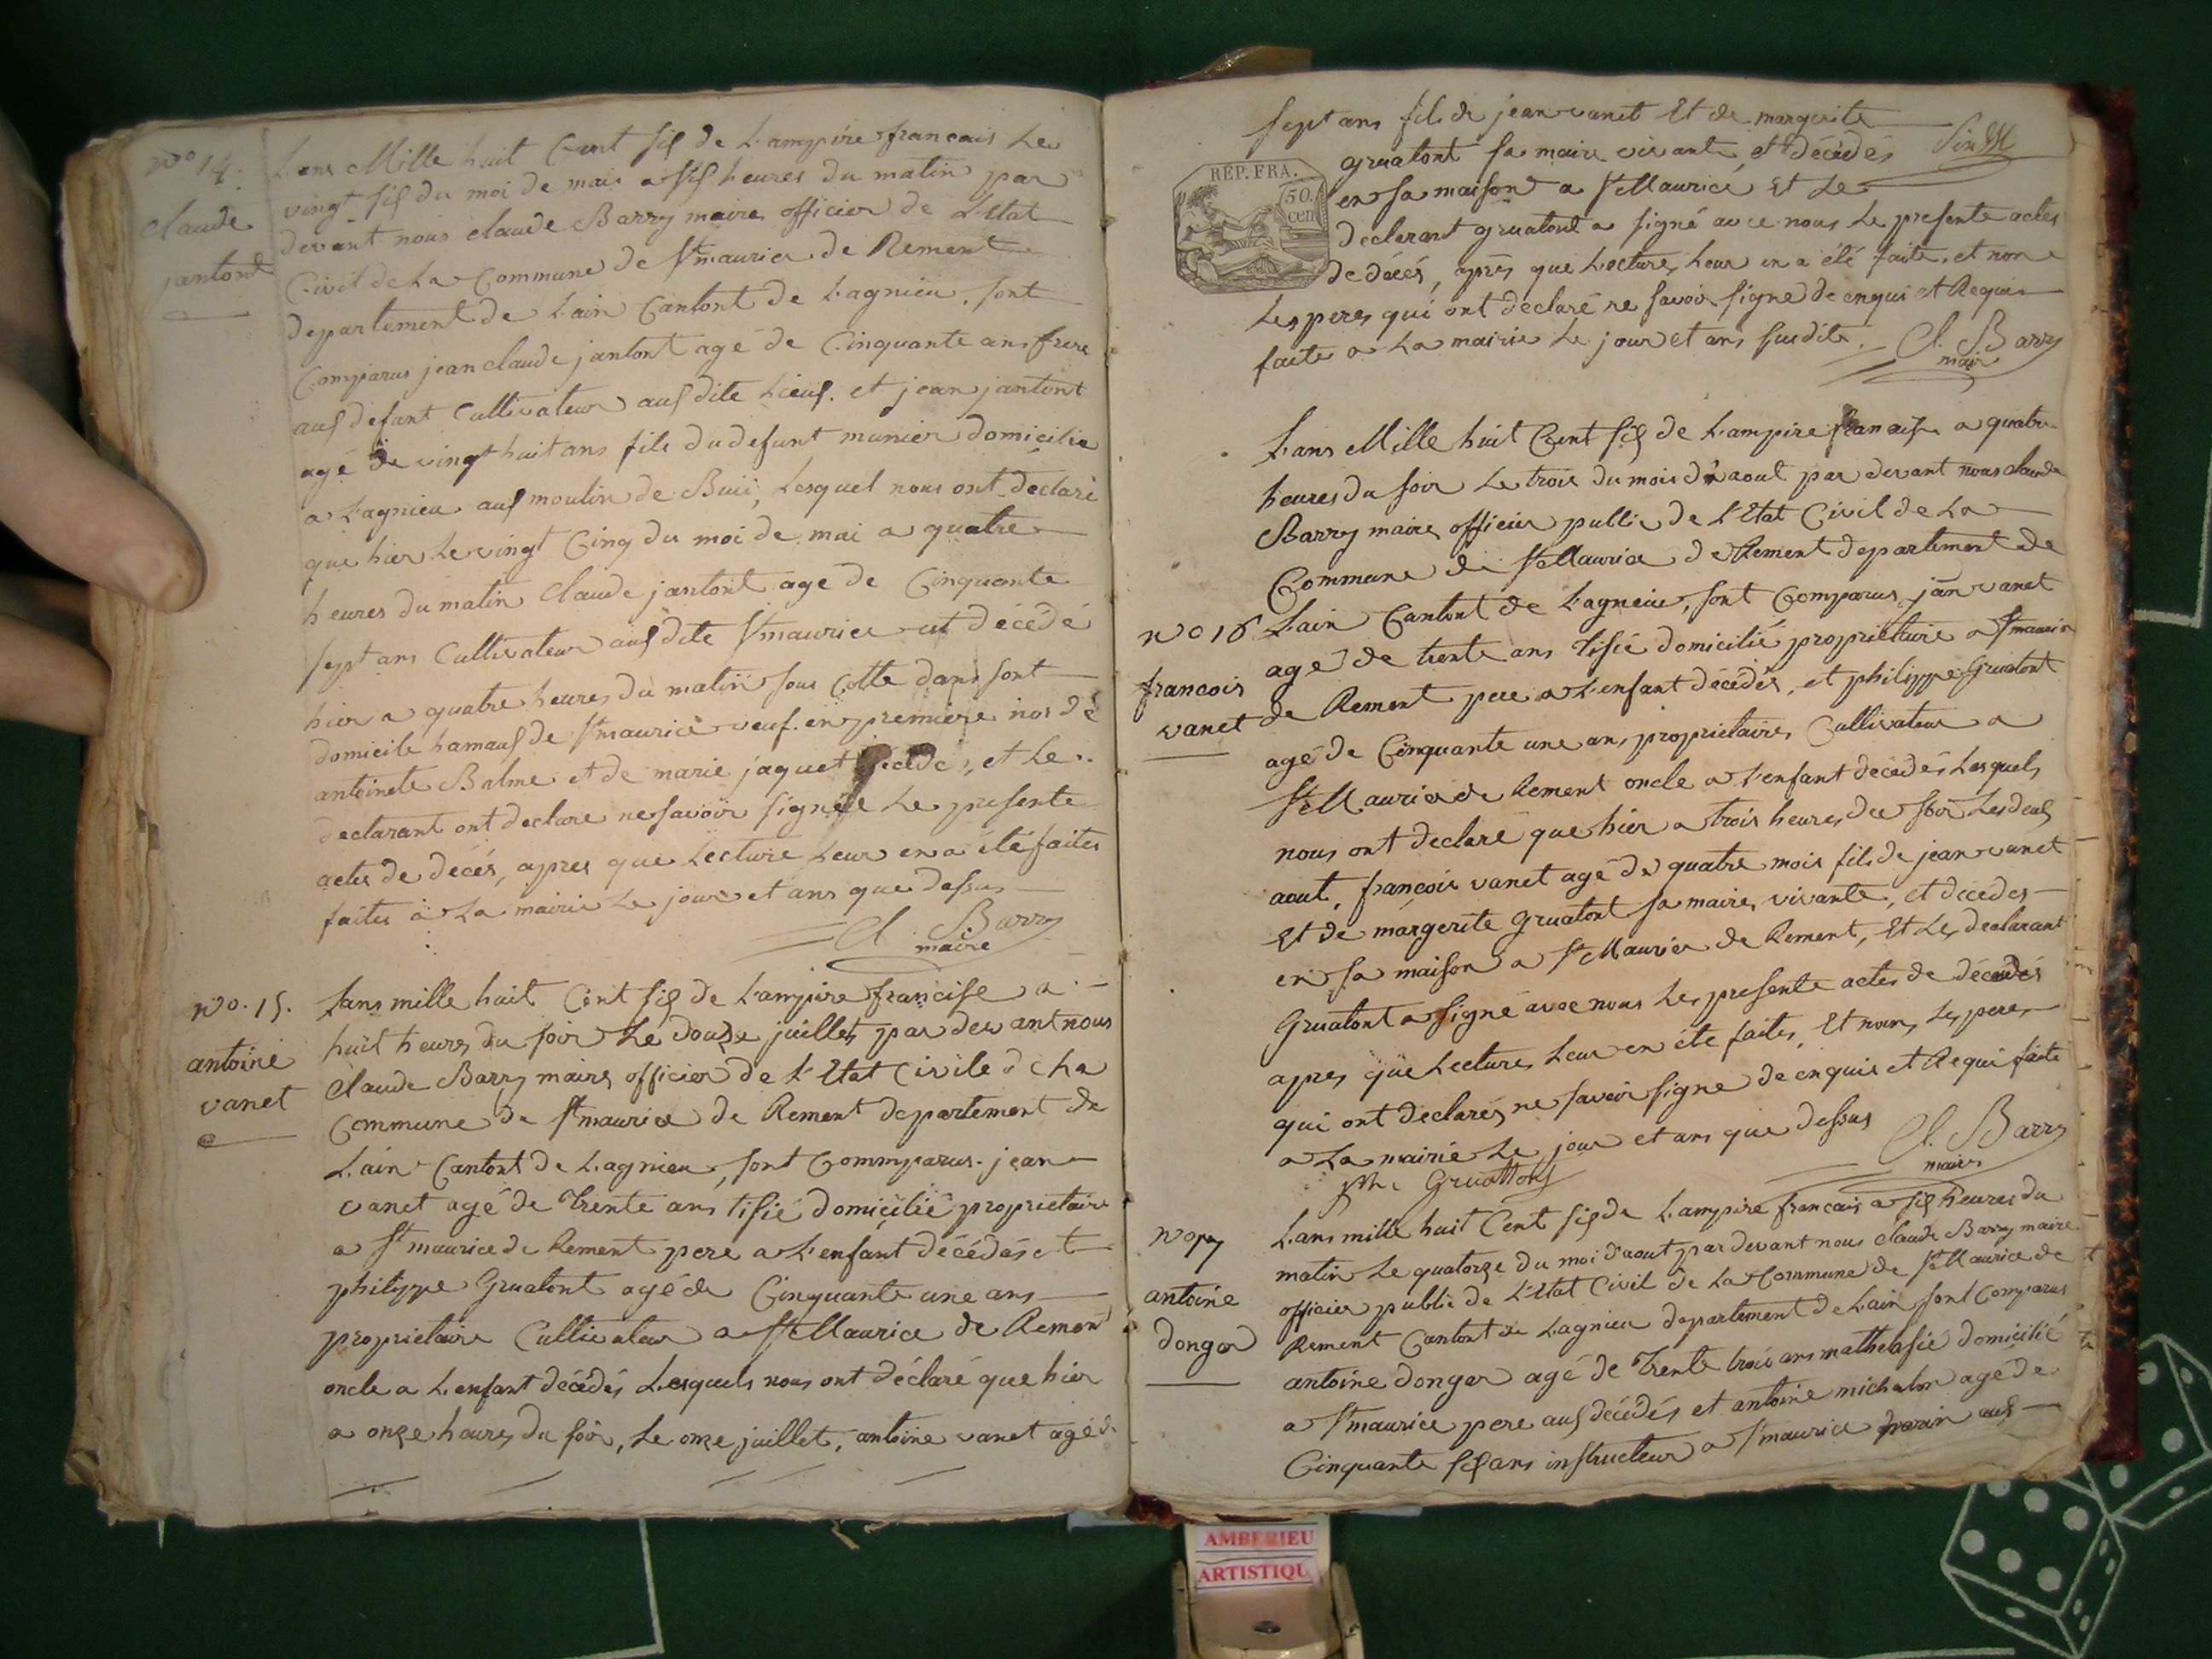 no 14.
claude
jantont
L'ans Mille huit Cent six de L'ampire francais Le
vingt-six du moi de mai a six heures du matin par
devant nous claude Barry maire officier de L'Etat
Civil de La Commune de St maurice de Rement
departement de L'ain Cantont de Lagnieu, sont
Comparus jean claude jantont agé de Cinquante ans frere
aux defunt Cultivateur aux dite Lieux. et jean jantont
agé de vingt huit ans fils du defunt munier domicilie
a Lagnieu aux moulin de Buii, Lesquel nous ont declaré
que hier Le vingt Cinq du moi de mai a quatre
heures du matin Claude jantont age de Cinquante
sept ans Cultivateur aux dite St maurice est décédé
hier a quatre heures du matin sous Cotte dans sont
domicile hamaux de St maurice veuf. en premiere nos de
antoinete Balme et de marie jaquet decede, et Le
declarant ont declare ne savoir signée Le presente
actes de décés, apres que Lecture Leur en a été faites
faites a La mairie Le jour et ans que dessus
Cl. Barry
maire
No. 15.
antoine
vanet
Lans mille huit Cent six de L'ampire francise a
huit heures du soir Le douze juillet par devant nous
Claude Barry maire officier de L'Etat Civile d e La
Commune de St maurice de Rement departement de
L'ain Cantont de Lagnieu, sont Commparus. jean
vanet agé de Trente ans tisié domicilié proprietaire
a St maurice de Rement pere a L'enfant décédés et
philippe Gruatont agé de Cinquante une ans
proprietaire Cultivateur a St Maurice de Remont
oncle a L'enfant décédés Lesquels nous ont déclaré que hier
a onze heures du soir, Le onze juillet, antoine vanet agé de
sept ans fils de jean vanet Et de margerite
gruatont sa maire vivante et décédés
en sa maison a St Maurice Et Le
declarant gruatont a signé av ce nous Le presente actes
de décés, aprés que Lecture, Leur en a été faite, et non
Les peres qui ont declaré ne savoir signe de enqui et Requis
faite a La mairie Le jour et ans susdite.
RÉP. FRA.
50.
cen
Cl. Barry
maire
no 16
francois
vanet
L'ans Mille huit Cent six de L'ampire franaise a quatre
heures du soir Le trois du mois d'aout par devant nous claude
Barry maire officier public de L'Etat Civil de La
Commune de St Maurice de Rement departement de
L'ain Cantont de Lagnieu, sont Comparus jean vanet
agé de trente ans tisié domicilié proprietaire a St maurice
de Rement pere a L'enfant décédés, et philippe Gruatont
agé de Cinquante une ans, proprietaire Cultivateur a
St Maurice de Rement oncle a L'enfant decedés Lesquels
nous ont declaré que hier a trois heures du soir Les deux
aout, francois vanet agé de quatre mois fils de jean vanet
Et de margerite Gruatont sa maire, vivante, et décedes
en sa maison a St Maurice de Rement, Et Les declarant
Gruatont a signé avec nous Les presente actes de décedés
apres que Lectures Leur en éte faites, Et nom, Les peres
qui ont declarés ne savoir signe de enquis et Requi faite
a La mairie Le jour et ans que dessus
Cl. Barry
maire
phi Gruattont
No 17
antoine
donger
L'ans mille huit Cent six de L'ampire francais a six heures du
matin Le quatorze du moi d'aout par devant nous claude Barry maire
officier public de L'Etat Civil de La Commune de St Maurice de
Rement Cantont de Lagnieu departement de L'ain sont Comparus
antoine donger agé de Trente trois ans domicilié
a St maurice pere aux décédés et antoine michalon agé de
Cinquante six ans instructeur a St maurice aux
AMBERIEU
ARTISTIQU